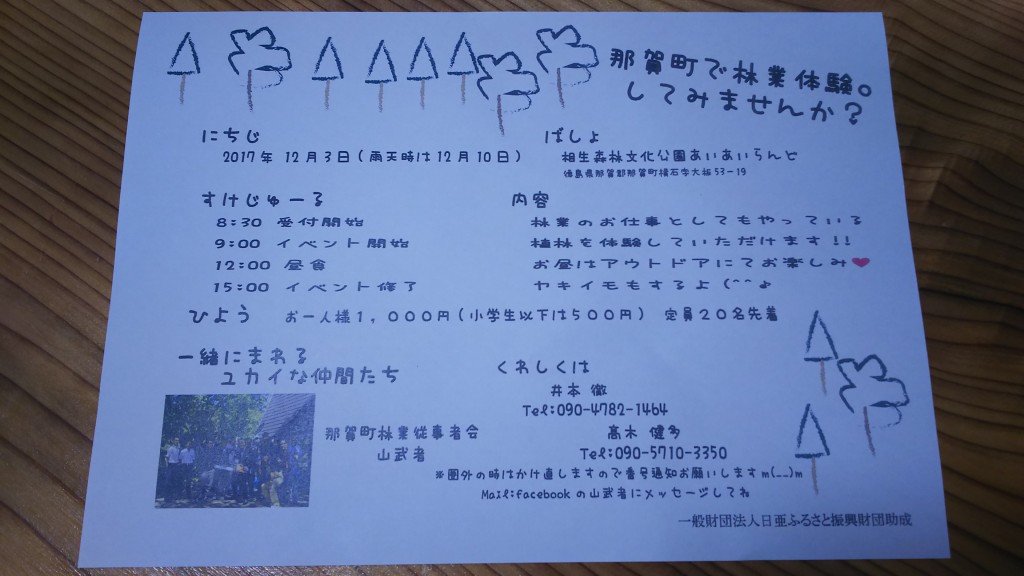 那賀町で林業体験。
してみませんか？
にちじ
2017年 12月3日(雨天時は12月10日)
ばしょ
相生森林文化公園あいあいらんど
徳島県那賀郡那賀町横石字大板53-19
すけじゅーる
8:30 受付開始
9:00 イベント開始
12:00 昼食
15:00 イベント修了
内容
林業のお仕事としてもやっている
植林を体験していただけます!!
お昼はアウトドアにてお楽しみ❤
ヤキイモもするよ(^^♪
ひよう お一人様1,000円(小学生以下は500円) 定員20名先着
一緒にまわる
ユカイな仲間たち
那賀町林業従事者会
山武者
くわしくは
井本 徹
Tel:090-4782-1464
髙木 健多
Tel:090-5710-3350
※圏外の時はかけ直しますので番号通知お願いしますm(__)m
Mail:facebookの山武者にメッセージしてね
一般財団法人日亜ふるさと振興財団助成